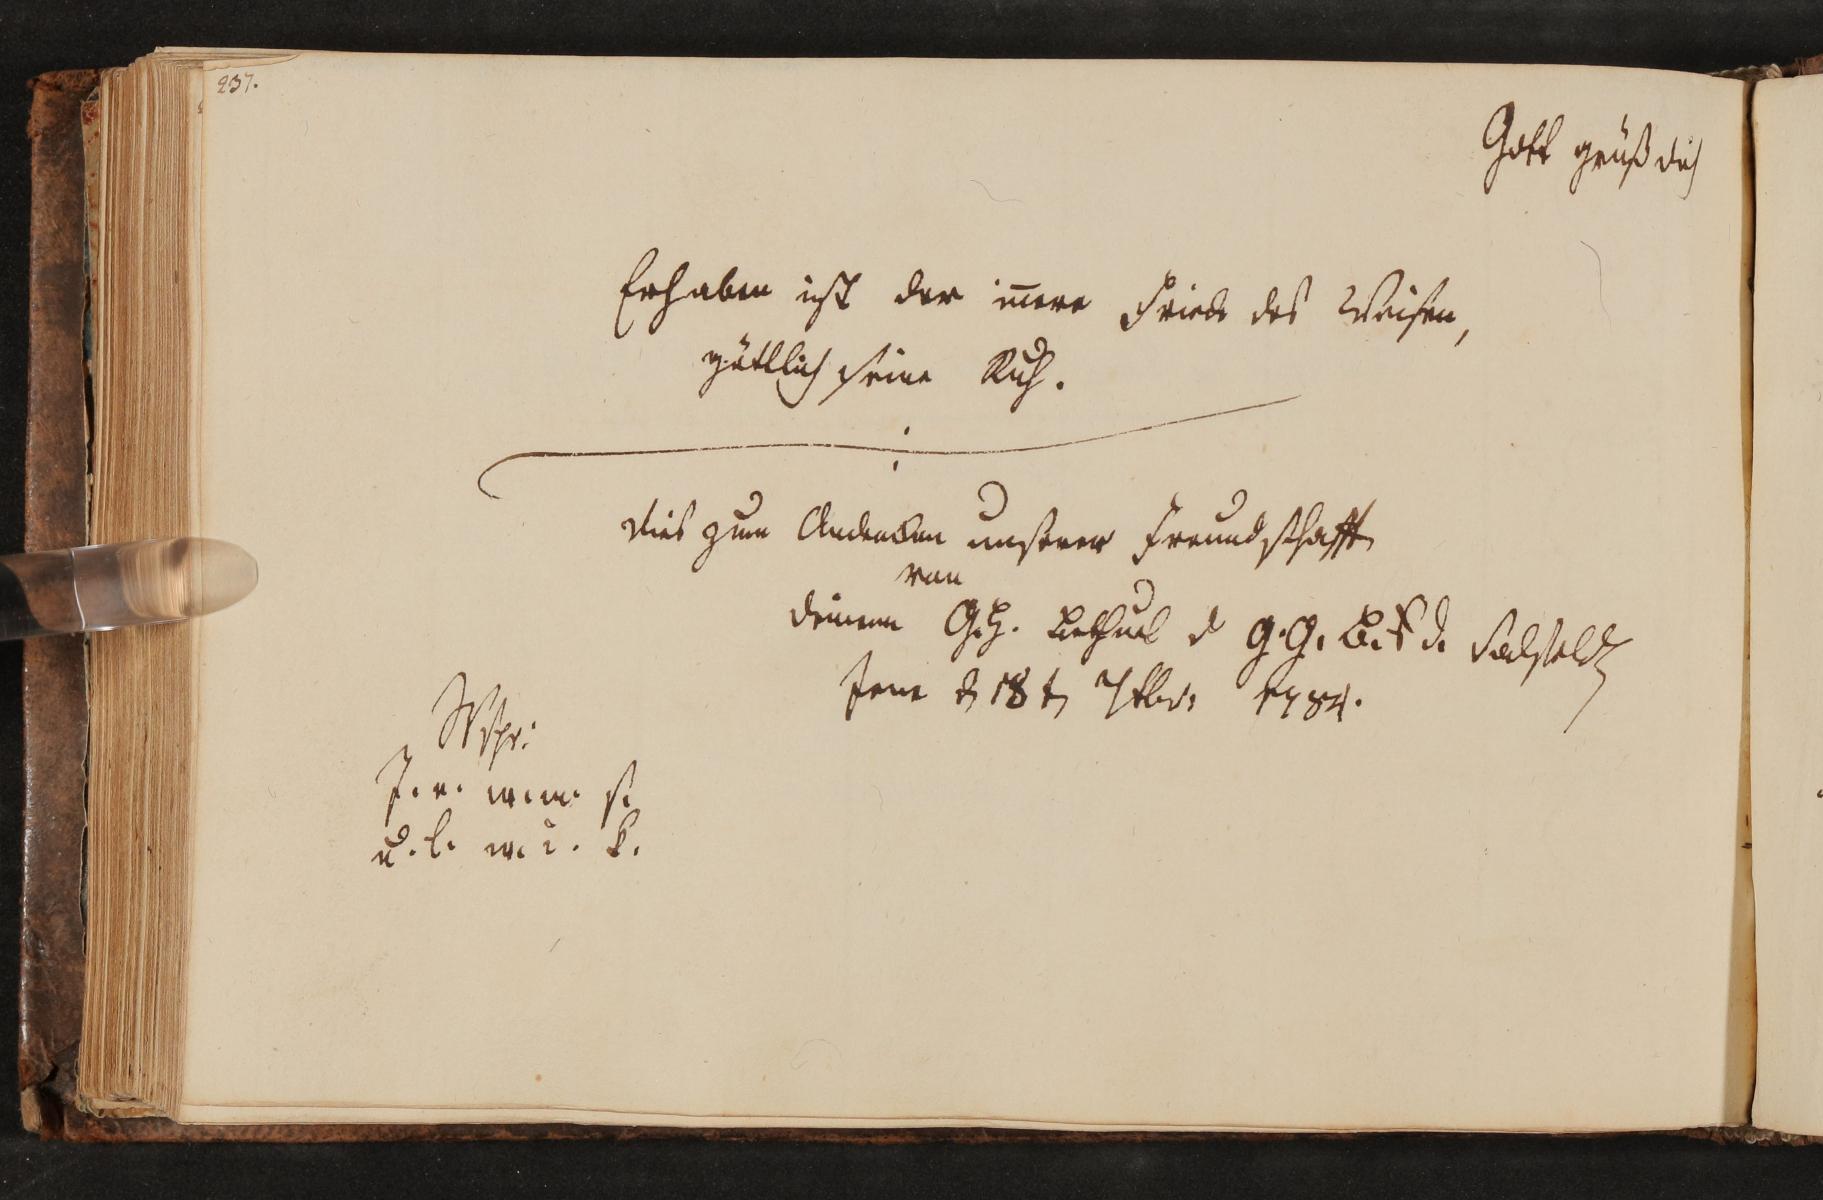 237.
Gott grüß dich
Erhaben ist der in̄ere Friede des Weisen,
göttlich seine Ruh.
Dies zum Andencken unserer Freundschafft
von
deinem G. H. d G. G. B. d.
Jena d 18 t 7tbr: 1784.
Wspr:
J. v. w. w. s.
u. l. w. i. k.